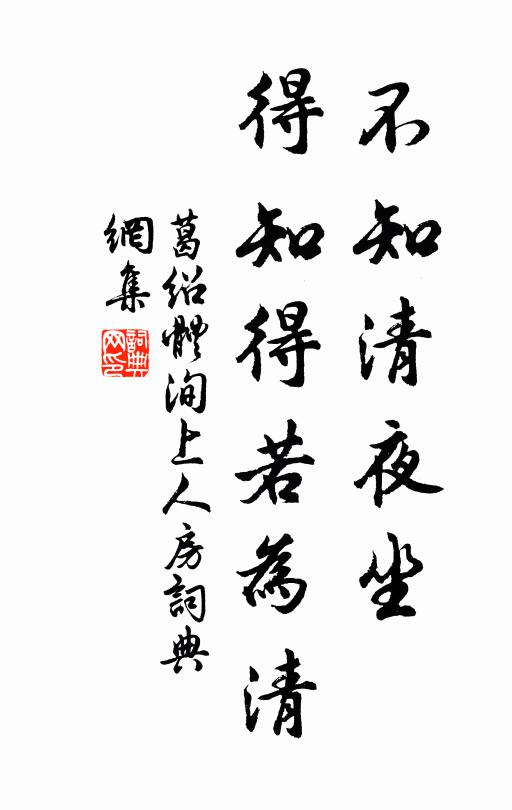 不知清夜坐
得知得若為清
葛紹體洵上人房詞典
網集
詞典
网印